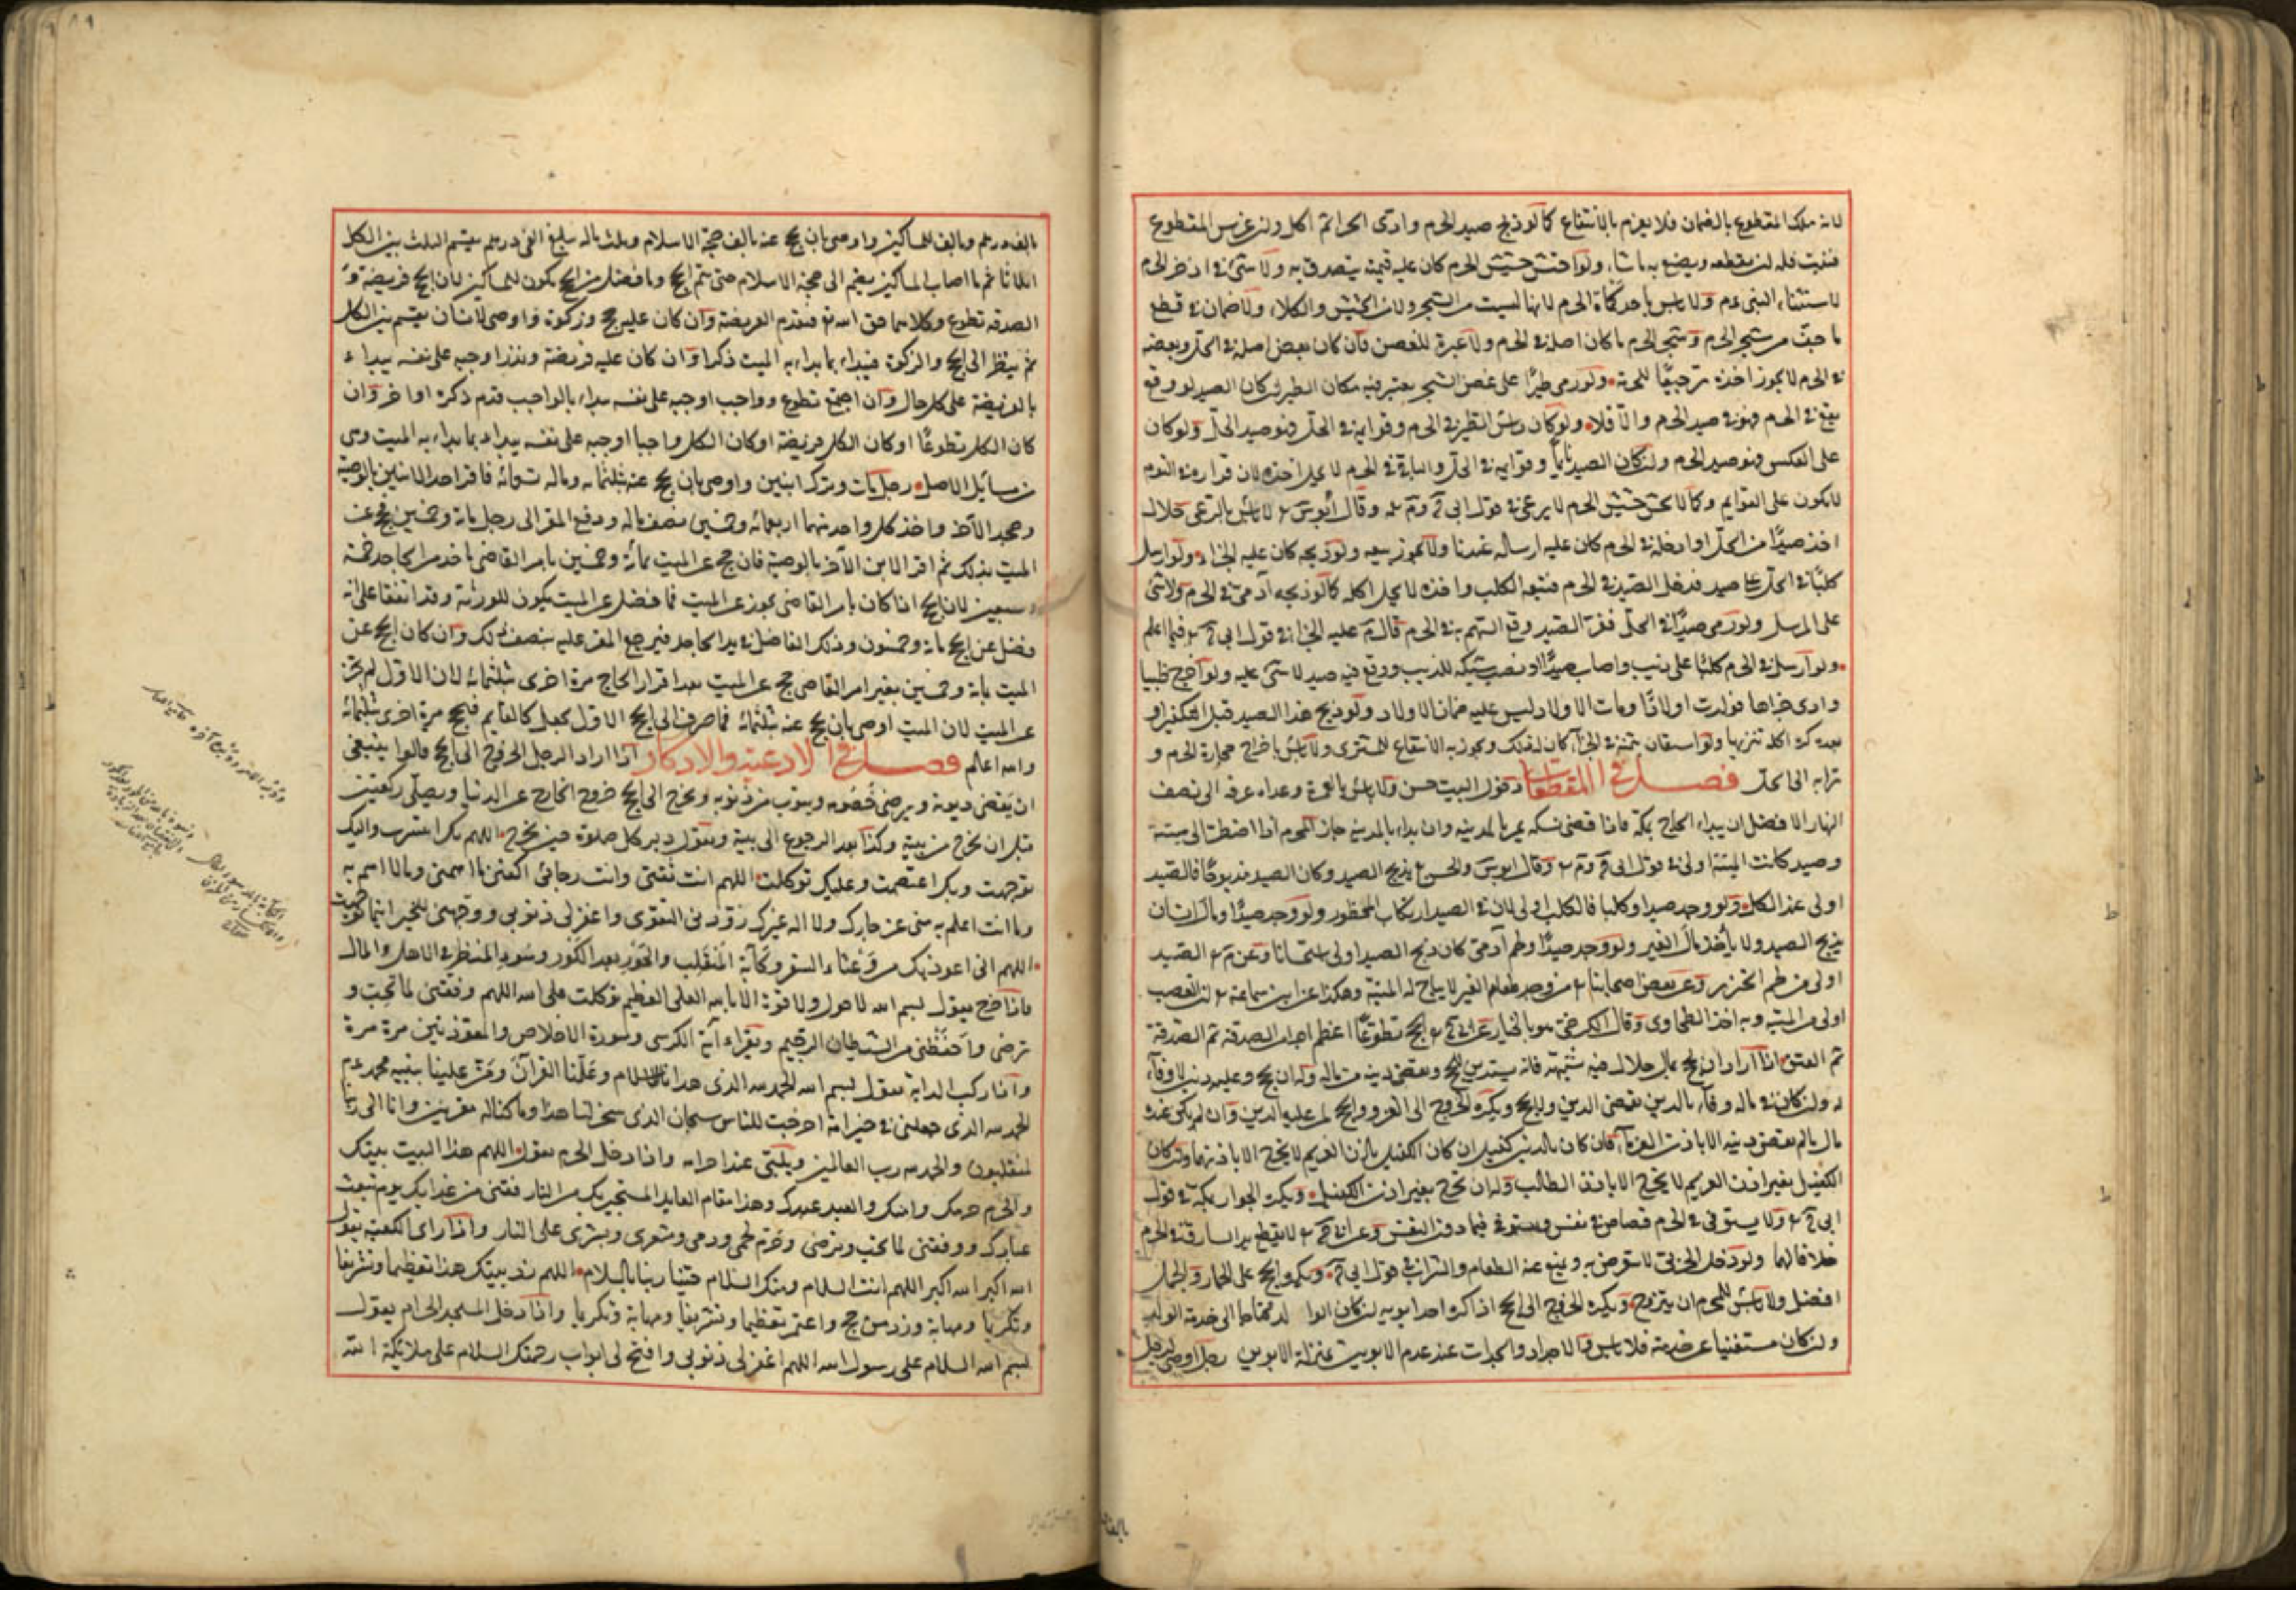 لانه ملك المقطوع بالضمان فلا يغرم بالانتفاع كما لو ذبح صيد الحرم وادى الجزا ثم اكل ولو غرس المقطوع
فنبت فله ان يقطعه ويصنع به ما شاء ولو احتش حشيش الحرم كان عليه قيمته يتصدق به ولا شئ في اذخر الحرم
لاستثناء النبي عم ولا باس باخذ كماة الحرم لانها ليست من الشجر ولا من الحشيش والكلاء ولا ضمان في قطع
ما جف من شجر الحرم وشجر الحرم ما كان اصله في الحرم ولا عبرة للغصن فان كان بعض اصله في الحل وبعضه
في الحرم لا يجوز اخذه ترجيحًا للحرمة ولو رمى طيرًا على غصن الشجر يعتبر فيه مكان الطير ان كان الصيد لو وقع
يقع في الحرم فهو في صيد الحرم والا فلا ولو كان راس الظبي في الحرم وقوايمه في الحل فهو صيد الحل ولو كان
على العكس فهو صيد الحرم ولو كان الصيد نايمًا وقوايمه في الحل والباقي في الحرم لا يحل اخذه لان قراره في النوم
لا يكون على القوايم وكما لا يحتش حشيش الحرم لا يرعى في قول ابي ح وم وقال ابو س لا باس بالرعي حلال
اخذ صيدًا من الحل وادخله في الحرم كان عليه ارساله عندنا ولا يجوز بيعه ولو ذبحه كان عليه الجزاء ولو ارسل
كلبًا في الحل على صيد فدخل الصيد في الحرم فتبعه الكلب واخذه لا يحل اكله كما لو ذبحه آدمي في الحرم ولا شئ
على المرسل ولو رمى صيدًا في الحل فنفر الصيد ووقع السهم به في الحرم قال م عليه الجزا في قول ابي ح فيما اعلم
ولو ارسل في الحرم كلبًا على ذيب واصاب صيدًا او نصب شبكة للذيب ووقع فيه صيد لا شئ عليه ولو اخرج ظبيا
وادى جزاها فولدت اولادًا ومات الاولاد ليس عليه ضمان الاولاد ولو ذبح هذا الصيد قبل التكفير او
بعده كره اكله تنزيها ولو استعان بثمنه في الجزاء كان له ذلك ويجوز به الانتفاع للمشتري ولا باس باخراج حجارة الحرم و
ترابه الى الحل فصل في المقطعات دخول البيت حسن ولا باس بالعمرة وغداة عرفة الى نصف
النهار الافضل ان يبداء الحاج بمكة فاذا قضى نسكه يمر بالمدينة وان بداء بالمدينة جاز المحرم اذا اضطر الى ميتة
وصيد كانت الميتة اولى في قول ابي ح وم وقال ابو س والحسن يذبح الصيد وكان الصيد مذبوحًا فالصيد
اولى عند الكل ولو وجد صيدا وكلبا فالكلب اولى لان في الصيد ارتكاب المحظور ولو وجد صيدًا ومال انسان
يذبح الصيد ولا يأخذ مال الغير ولو وجد صيدًا ولحم آدمي كان ذبح الصيد اولى استحسانا وعن م الصيد
اولى من لحم الخنزير وعن بعض اصحابنا من وجد طعام الغير لا يباح له الميتة وهكذا عن ابن سماعة ان الغصب
اولى من الميتة وبه اخذ الطحاوي وقال الكرخي هو بالخيار عن ابي ح الحج تطوعًا اعظم اجرا من الصدقة ثم الصدقة
ثم العتق اذا اراد ان يحج بمال حلال فيه شبهة فانه يستدين للحج ويقضي دينه من ماله وله ان يحج وعليه دين لا وفاء
له وان كان في ماله وفاء بالدين يقضي الدين ولا يحج ويكره الخروج الى الغزو والحج لمن عليه الدين وان لم يكن عنده
مال ما لم يقض دينه الا باذن الغرماء فان كان بالدين كفيل ان كان الكفيل باذن الغريم لا يخرج الا باذنهما وان كان
الكفيل بغير اذن الغريم لا يخرج الا باذن الطالب وله ان يخرج بغير اذن الكفيل ويكره الجوار بمكة في قول
ابي ح ولا يستوفي في الحرم قصاص في نفس ويستوفي فيما دون النفس وعن ابي ح لا يقطع يد السارق في الحرم
خلافا لهما ولو دخل الحربي لا يتعرض به ويمنع عنه الطعام والشراب في قول ابي ح ويكره الحج على الحمار والجمل
افضل ولا باس للمحرم ان يتزوج ويكره الخروج الى الحج اذا كره احد ابويه ان كان الوالد محتاجا الى خدمة الولد
وان كان مستغنيا عن خدمته فلا باس والاجداد والجدات عند عدم الابوين بمنزلة الابوين رجل اوصى لرجل
بالف
بالف درهم وبالف للمساكين واوصى بان يحج عنه بالف حجة الاسلام وثلث ماله يبلغ الفي درهم يقسم الثلث بين الكل
اثلاثا ثم ما اصاب المساكين يضم الى حجة الاسلام حتى يتم الحج وما فضل من الحج يكون للمساكين لان الحج فريضة و
الصدقة تطوع وكلاهما حق الله تع فيقدم الفريضة وان كان عليه حج وزكوة واوصى لانسان يقسم بين الكل
ثم ينظر الى الحج والزكوة فيبداء بما بداء به الميت ذكرا وان كان عليه فريضة ونذر اوجبه على نفسه يبداء
بالفريضة على كل حال وان اجتمع تطوع وواجب اوجبه على نفسه يبداء بالواجب قدم ذكره او اخر وان
كان الكل تطوعًا او كان الكل فريضة او كان الكل واجبا اوجبه على نفسه يبداء بما بداء به الميت وهي
من مسائل الاصل رجل مات وترك ابنين واوصى بان يحج عنه بثلثمائة وماله تسمائة فاقر احد الابنين بالوصية
وجحد الآخر واخذ كل واحد منهما اربعمائة وخمسين نصف ماله ودفع المقر الى رجل مائة وخمسين يحج عن
الميت بذلك ثم اقر الابن الآخر بالوصية فان حج عن الميت بمائة وخمسين بامر القاضي ياخذ من الجاحد خمسة
وسبعين لان الحج اذا كان بامر القاضي يجوز عن الميت فما فضل عن الميت يكون للورثة وقد اتفقا على انه
فضل عن الحج مائة وخمسون وذلك الفاضل في يد الجاحد فيرجع المقر عليه بنصف ذلك وان كان الحج عن
الميت بمائة وخمسين بغير امر القاضي حج عن الميت بعد اقرار الجاحد مرة اخرى بثلثمائة لان الاول لم يجز
عن الميت لان الميت اوصى بان يحج عنه بثلثمائة فما صرف الى الحج الاول يجعل كالقايم فيحج مرة اخرى بثلثمائة
والله اعلم فصل في الادعية والاذكار اذا اراد الرجل الخروج الى الحج قالوا ينبغي
ان يقضي ديونه ويرضي خصومه ويتوب من ذنوبه ويخرج الى الحج خروج الخارج عن الدنيا ويصلي ركعتين
قبل ان يخرج من بيته وكذا بعد الرجوع الى بيته ويقول دبر كل صلوة حين يخرج اللهم بك انتشرت واليك
توجهت وبك اعتصمت وعليك توكلت اللهم انت ثقتي وانت رجائي اكفني ما اهمني وما لا اهتم به
وما انت اعلم به مني عز جارك ولا اله غيرك زودني التقوى واغفر لي ذنوبي ووجهني للخير اينما توجهت
اللهم اني اعوذ بك من وعثاء السفر وكآبة المنقلب والحور بعد الكور وسوء المنظر في الاهل والمال
فاذا خرج يقول بسم الله لا حول ولا قوة الا بالله العلي العظيم توكلت على الله اللهم وفقني لما تحب و
ترضى واحفظني من الشيطان الرجيم ويقراء آية الكرسي وسورة الاخلاص والمعوذتين مرة مرة
واذا ركب الدابة يقول بسم الله الحمد لله الذي هدانا للاسلام وعلمنا القرآن ومن علينا بنبيه محمد عم
الحمد لله الذي جعلني في خير امة اخرجت للناس سبحان الذي سخر لنا هذا وما كنا له مقرنين وانا الى ربنا
لمنقلبون والحمد لله رب العالمين ويلبي عند احرامه واذا دخل الحرم يقول اللهم هذا البيت بيتك
والحرم حرمك وامنك والعبد عبدك وهذا مقام العايذ المستجير بك من النار فقني من عذابك يوم تبعث
عبادك ووفقني لما تحب وترضى وحرم لحمي ودمي وشعري وبشري على النار واذا راى الكعبة يقول
الله اكبر الله اكبر اللهم انت السلام ومنك السلام حينا ربنا بالسلام اللهم زد بيتك هذا تعظيما وتشريفا
وتكريما ومهابة وزد من حج واعتمر تعظيما وتشريفا ومهابة وتكريما واذا دخل المسجد الحرام يقول
بسم الله السلام على رسول الله اللهم اغفر لي ذنوبي وافتح لي ابواب رحمتك السلام على ملائكة الله